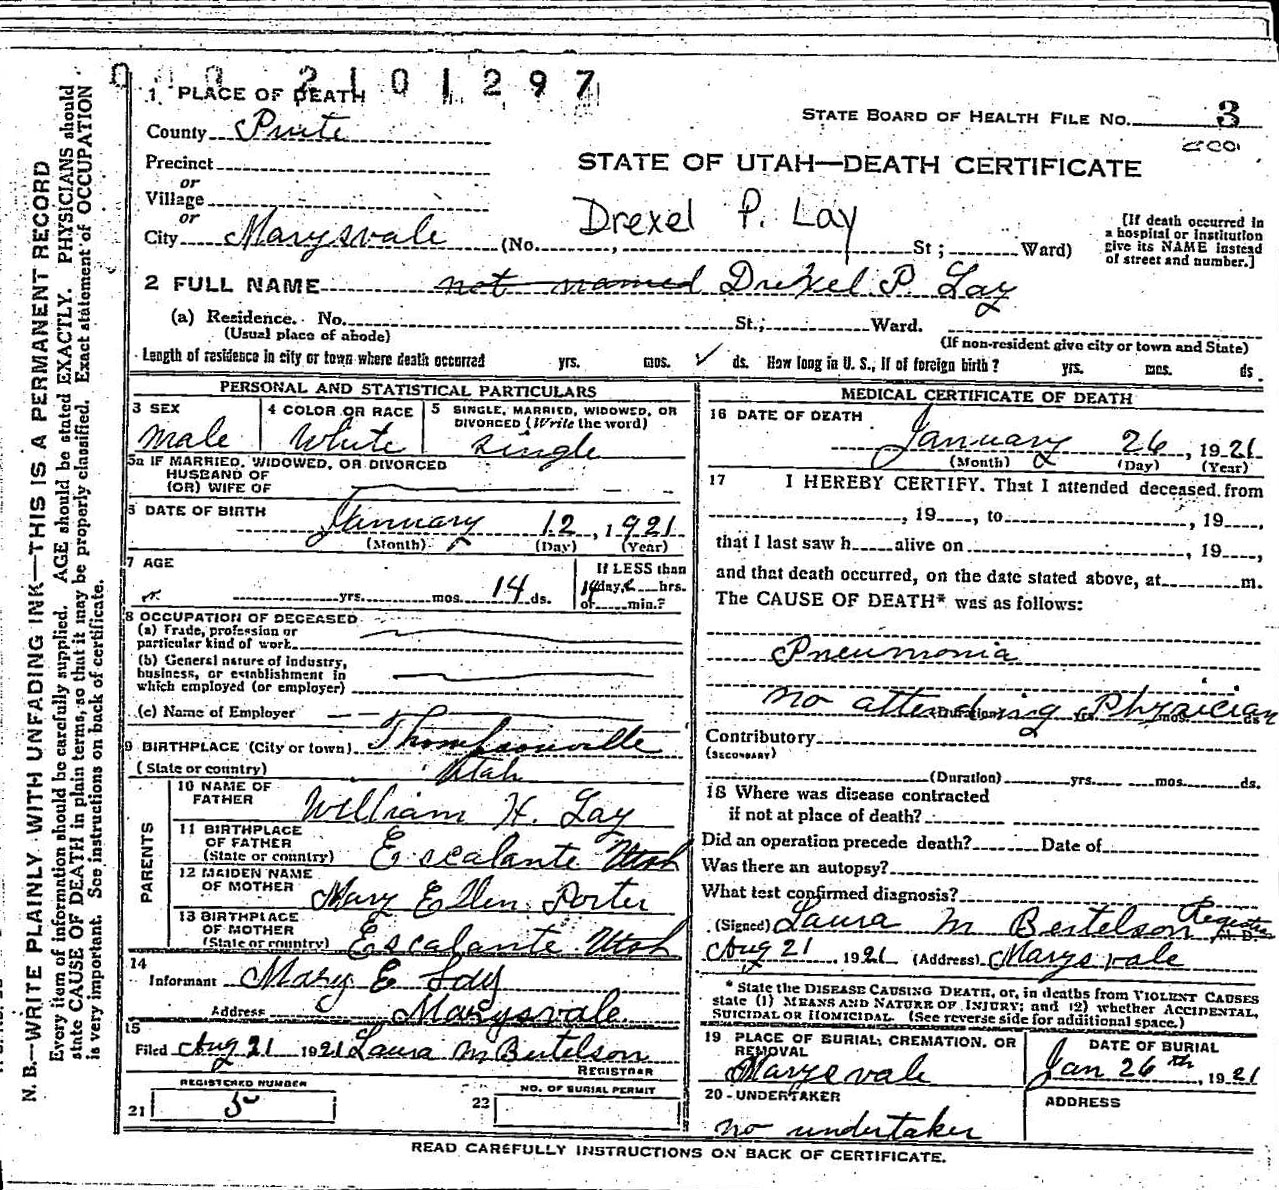 0 0 0 2 1 0 1 2 9 7
1 PLACE OF DEATH
STATE BOARD OF HEALTH FILE NO. 3
County Piute
STATE OF UTAH—DEATH CERTIFICATE
Precinct
or
Village
or
Drexel P. Lay
City Marysvale (No. , St ; Ward)
[If death occurred in
a hospital or institution
give its NAME instead
of street and number.]
2 FULL NAME not named Drexel P. Lay
(a) Residence. No. St.; Ward.
(Usual place of abode)
(If non-resident give city or town and State)
Length of residence in city or town where death occurred yrs. mos. ✓ ds. How long in U. S., if of foreign birth? yrs. mos. ds.
PERSONAL AND STATISTICAL PARTICULARS
3 SEX
Male
4 COLOR OR RACE
White
5 SINGLE, MARRIED, WIDOWED, OR
DIVORCED (Write the word)
Single
5a IF MARRIED, WIDOWED, OR DIVORCED
HUSBAND OF
(OR) WIFE OF
6 DATE OF BIRTH
January 12, 1921
(Month) (Day) (Year)
7 AGE
yrs. mos. 14 ds.
If LESS than
day, hrs.
or min.?
8 OCCUPATION OF DECEASED
(a) Trade, profession or
particular kind of work
(b) General nature of industry,
business, or establishment in
which employed (or employer)
(c) Name of Employer
9 BIRTHPLACE (City or town) Thompsonville
(State or country) Utah
PARENTS
10 NAME OF
FATHER William H. Lay
11 BIRTHPLACE
OF FATHER
(State or country) Escalante Utah
12 MAIDEN NAME
OF MOTHER Mary Ellen Porter
13 BIRTHPLACE
OF MOTHER
(State or country) Escalante Utah
14
Informant Mary E Lay
Address Marysvale
15
Filed Aug 21 1921 Laura M Bertelson
REGISTRAR
REGISTERED NUMBER
21 5
NO. OF BURIAL PERMIT
22
MEDICAL CERTIFICATE OF DEATH
16 DATE OF DEATH
January 26, 1921
(Month) (Day) (Year)
17 I HEREBY CERTIFY. That I attended deceased from
, 19 , to , 19 ,
that I last saw h alive on , 19 ,
and that death occurred, on the date stated above, at m.
The CAUSE OF DEATH* was as follows:
Pneumonia
no attending Physician
(Duration) yrs. mos. ds.
Contributory
(SECONDARY)
(Duration) yrs. mos. ds.
18 Where was disease contracted
if not at place of death?
Did an operation precede death? Date of
Was there an autopsy?
What test confirmed diagnosis?
(Signed) Laura M Bertelson Registrar M. D.
Aug 21 1921 (Address) Marysvale
* State the DISEASE CAUSING DEATH, or, in deaths from VIOLENT CAUSES
state (1) MEANS AND NATURE OF INJURY; and (2) whether ACCIDENTAL,
SUICIDAL OR HOMICIDAL. (See reverse side for additional space.)
19 PLACE OF BURIAL, CREMATION, OR
REMOVAL
Marysvale
DATE OF BURIAL
Jan 26th, 1921
20 - UNDERTAKER
no undertaker
ADDRESS
READ CAREFULLY INSTRUCTIONS ON BACK OF CERTIFICATE.
N. B.—WRITE PLAINLY WITH UNFADING INK—THIS IS A PERMANENT RECORD
Every item of information should be carefully supplied. AGE should be stated EXACTLY. PHYSICIANS should
state CAUSE OF DEATH in plain terms, so that it may be properly classified. Exact statement of OCCUPATION
is very important. See instructions on back of certificate.